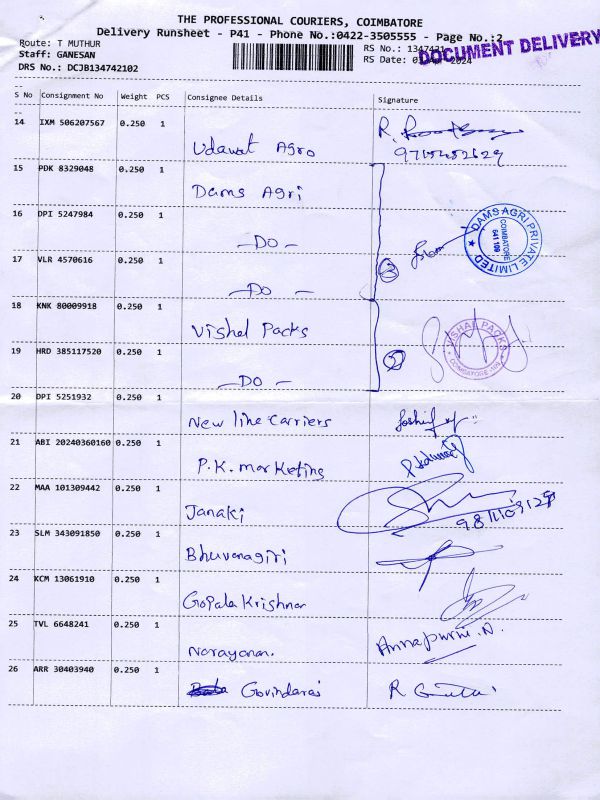 THE PROFESSIONAL COURIERS, COIMBATORE
Delivery Runsheet - P41 - Phone No.:0422-3505555 - Page No.:2
Route: T MUTHUR
Staff: GANESAN
DRS No.: DCJB134742102
RS No.: 1347421
RS Date: 2024
DOCUMENT DELIVERY
S No Consignment No Weight PCS Consignee Details Signature
14 IXM 506207567 0.250 1
Udawat Agro
R.
15 PDK 8329048 0.250 1
Dams Agri
16 DPI 5247984 0.250 1
— DO —
DAMS AGRI PRIVATE LIMITED
COIMBATORE
641 109
17 VLR 4570616 0.250 1
— DO —
18 KNK 80009918 0.250 1
Vishal Packs
VISHAL PACKS
COIMBATORE
19 HRD 385117520 0.250 1
— DO —
20 DPI 5251932 0.250 1
New line Carriers
21 ABI 20240360160 0.250 1
P.K. marketing
22 MAA 101309442 0.250 1
Janaki
23 SLM 343091850 0.250 1
Bhuvanagiri
24 KCM 13061910 0.250 1
Gopala Krishnan
25 TVL 6648241 0.250 1
Narayanan.
Annapurni.N.
26 ARR 30403940 0.250 1
Govindaraj
R